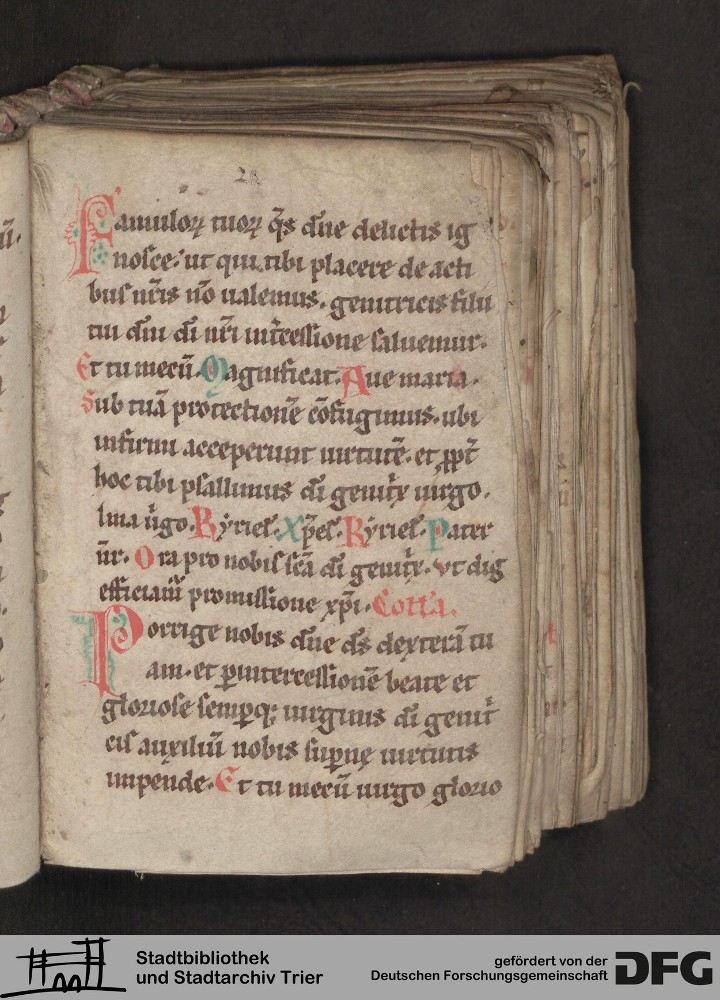 28
Famuloꝝ tuoꝝ q̄s dn̄e delictis ig
nosce. ut qui tibi placere de acti
bus nr̄is nō ualemus. genitricis filii
tui dn̄i di nr̄i int̄cessione saluemur.
Et tu mecū. Magnificat. Aue maria.
Sub tuā protectionē cōfugimus. ubi
infirmi acceperunt uirtutē. et ꝓpt̄
hoc tibi psallimus di genit̄x uirgo.
lma ūgo. Kyriel. Xp̄el. Kyriel. Pater
nr̄. Ora pro nobis sc̄a di genit̄x. vt dig
efficiam̄ promissione xp̄i. Coll'a.
Porrige nobis dn̄e ds̄ dexterā tu
am. et ꝑ intercessionē beate et
gloriose semperq; uirginis di genit̄
cis auxiliū nobis supernę uirtutis
impende. Et tu mecū uirgo glorio
Stadtbibliothek
und Stadtarchiv Trier
gefördert von der
Deutschen Forschungsgemeinschaft
DFG